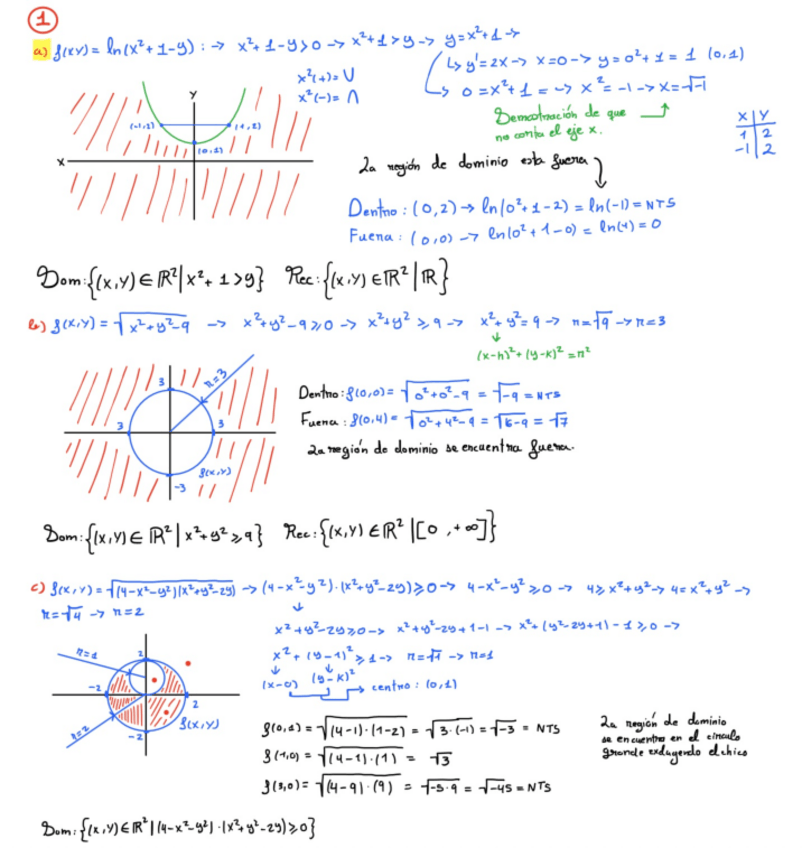 1
a) f(x,y) = ln(x²+1-y) : → x²+1-y>0 → x²+1>y → y=x²+1 →
↳ y'=2x → x=0 → y=0²+1=1 (0,1)
x²(+)=∪
x²(-)=∩
↳ 0=x²+1= → x²=-1 → x=√-1
Demostración de que
no corta el eje x.
x | y
1 | 2
-1 | 2
Y
(-1,2) (1,2)
(0,1)
X
La región de dominio esta fuera
Dentro : (0,2) → ln(0²+1-2) = ln(-1) = NTS
Fuera : (0,0) → ln(0²+1-0) = ln(1) = 0
Dom:{(x,y)∈ℝ²|x²+1>y} Rec:{(x,y)∈ℝ²|ℝ}
b) f(x,y)=√x²+y²-9 → x²+y²-9≥0 → x²+y²≥9 → x²+y²=9 → r=√9 → r=3
(x-h)²+(y-k)²=r²
r=3
3
3 3
-3
f(x,y)
Dentro: f(0,0)=√0²+0²-9 = √-9 = NTS
Fuera : f(0,4)=√0²+4²-9 = √16-9 = √7
La región de dominio se encuentra fuera.
Dom:{(x,y)∈ℝ²|x²+y²≥9} Rec:{(x,y)∈ℝ²|[0,+∞]}
c) f(x,y)=√(4-x²-y²)(x²+y²-2y) → (4-x²-y²)·(x²+y²-2y)≥0 → 4-x²-y²≥0 → 4≥x²+y² → 4=x²+y² →
r=√4 → r=2
x²+y²-2y≥0 → x²+y²-2y+1-1 → x²+(y²-2y+1)-1≥0 →
x²+(y-1)²≥1 → r=√1 → r=1
(x-0) (y-k)² → centro : (0,1)
r=1
2
-2 2
-2
r=2
f(x,y)
f(0,1)=√(4-1)·(1-2) = √3·(-1) = √-3 = NTS
f(1,0)=√(4-1)·(1) = √3
f(3,0)=√(4-9)·(9) = √-5·9 = √-45 = NTS
La región de dominio
se encuentra en el círculo
grande excluyendo el chico
Dom:{(x,y)∈ℝ²|(4-x²-y²)·(x²+y²-2y)≥0}